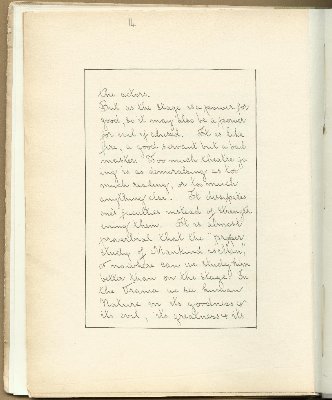 14
the actors.
But as the Stage is a power for
good, so it may also be a power
for evil if abused. It is like
fire, a good servant but a bad
master. Too much theatre go-
ing is as demoralising as too
much reading, or too much
anything else. It dissipates
our faculties instead of strength-
ening them. It is almost
proverbial that the "proper
study of Mankind is Man,
& nowhere can we study him
better than on the stage. In
the Drama we see human
Nature in its goodness &
its evil, its greatness & its